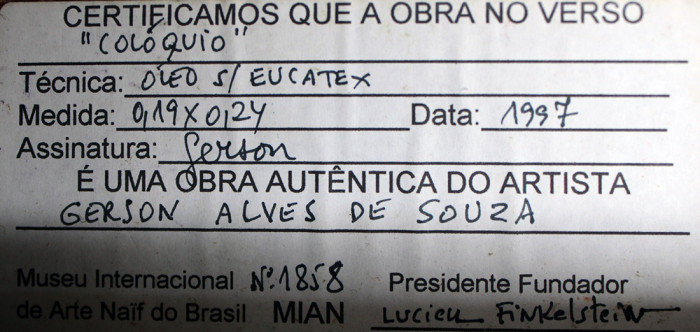 CERTIFICAMOS QUE A OBRA NO VERSO
"COLÓQUIO"
Técnica: ÓLEO S/ EUCATEX
Medida: 0,19 X 0,24 Data: 1997
Assinatura: Gerson
É UMA OBRA AUTÊNTICA DO ARTISTA
GERSON ALVES DE SOUZA
Museu Internacional Nº.1858 Presidente Fundador
de Arte Naïf do Brasil MIAN Lucien Finkelstein